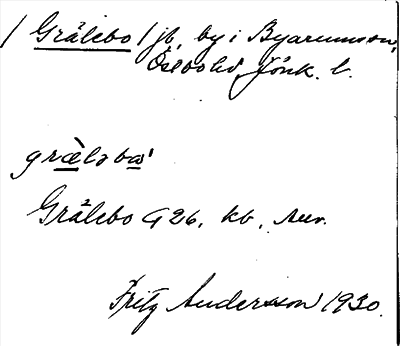 / Grälebo / jb, by i Byarums sn,
Östbo hd Jönk. l.
græ̀ləba'
Grälebo G 26, kb,
Fritz Andersson 1930.